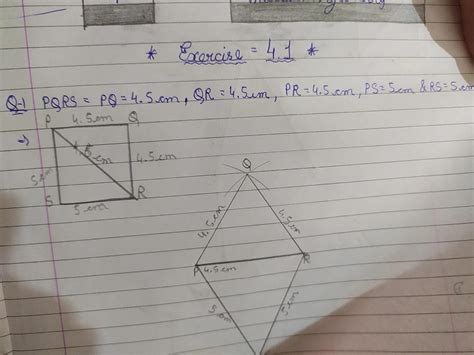 * Exercise = 4.1 *
Q-1 PQRS = PQ = 4.5cm, QR = 4.5cm, PR = 4.5cm, PS = 5cm & RS = 5cm
P 4.5cm Q
⇒
4.5cm
4.5cm
5cm
S 5cm R
Q
4.5cm 4.5cm
P 4.5cm R
5cm 5cm